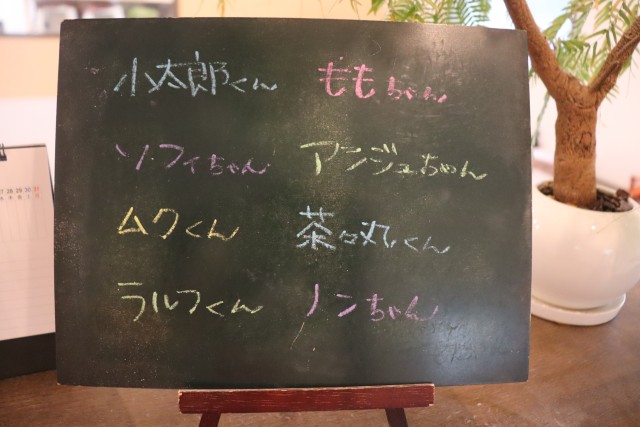 小太郎くん ももちゃん
ソフィちゃん アンジュちゃん
ムクくん 茶々丸くん
ラルフくん ノンちゃん
28 29 30 31